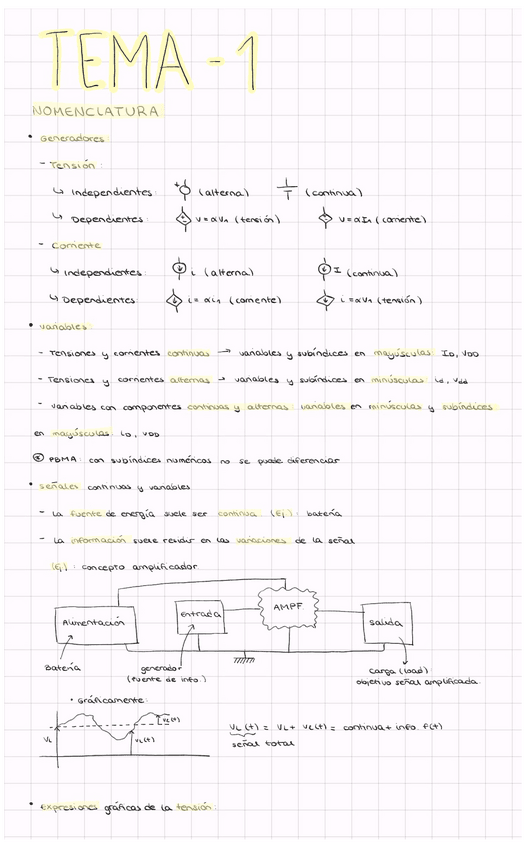 TEMA-1
NOMENCLATURA
• Generadores:
- Tensión:
↳ Independientes: + (alterna) (continua)
↳ Dependientes: v=αv₁ (tensión) v=αI₁ (corriente)
- Corriente
↳ Independientes: i (alterna) I (continua)
↳ Dependientes: i=αi₁ (corriente) i=αv₁ (tensión)
• variables:
- Tensiones y corrientes continuas → variables y subíndices en mayúsculas: ID, VDD
- Tensiones y corrientes alternas → variables y subíndices en minúsculas: id, vdd
- variables con componentes continuas y alternas: variables en minúsculas y subíndices
en mayúsculas: iD, vDD
con subíndices numéricos no se puede diferenciar
• señales continuas y variables
- La fuente de energía suele ser continua. (Ej): batería
- La información suele residir en las variaciones de la señal
(Ej): concepto amplificador
Alimentación Entrada AMPF. Salida
Batería generador (fuente de info.) Carga (load)
objetivo señal amplificada.
• Gráficamente:
VL vL(t) vL(t)
vL(t) = VL + vL(t) = continua + info. f(t)
señal total
• Expresiones gráficas de la tensión: